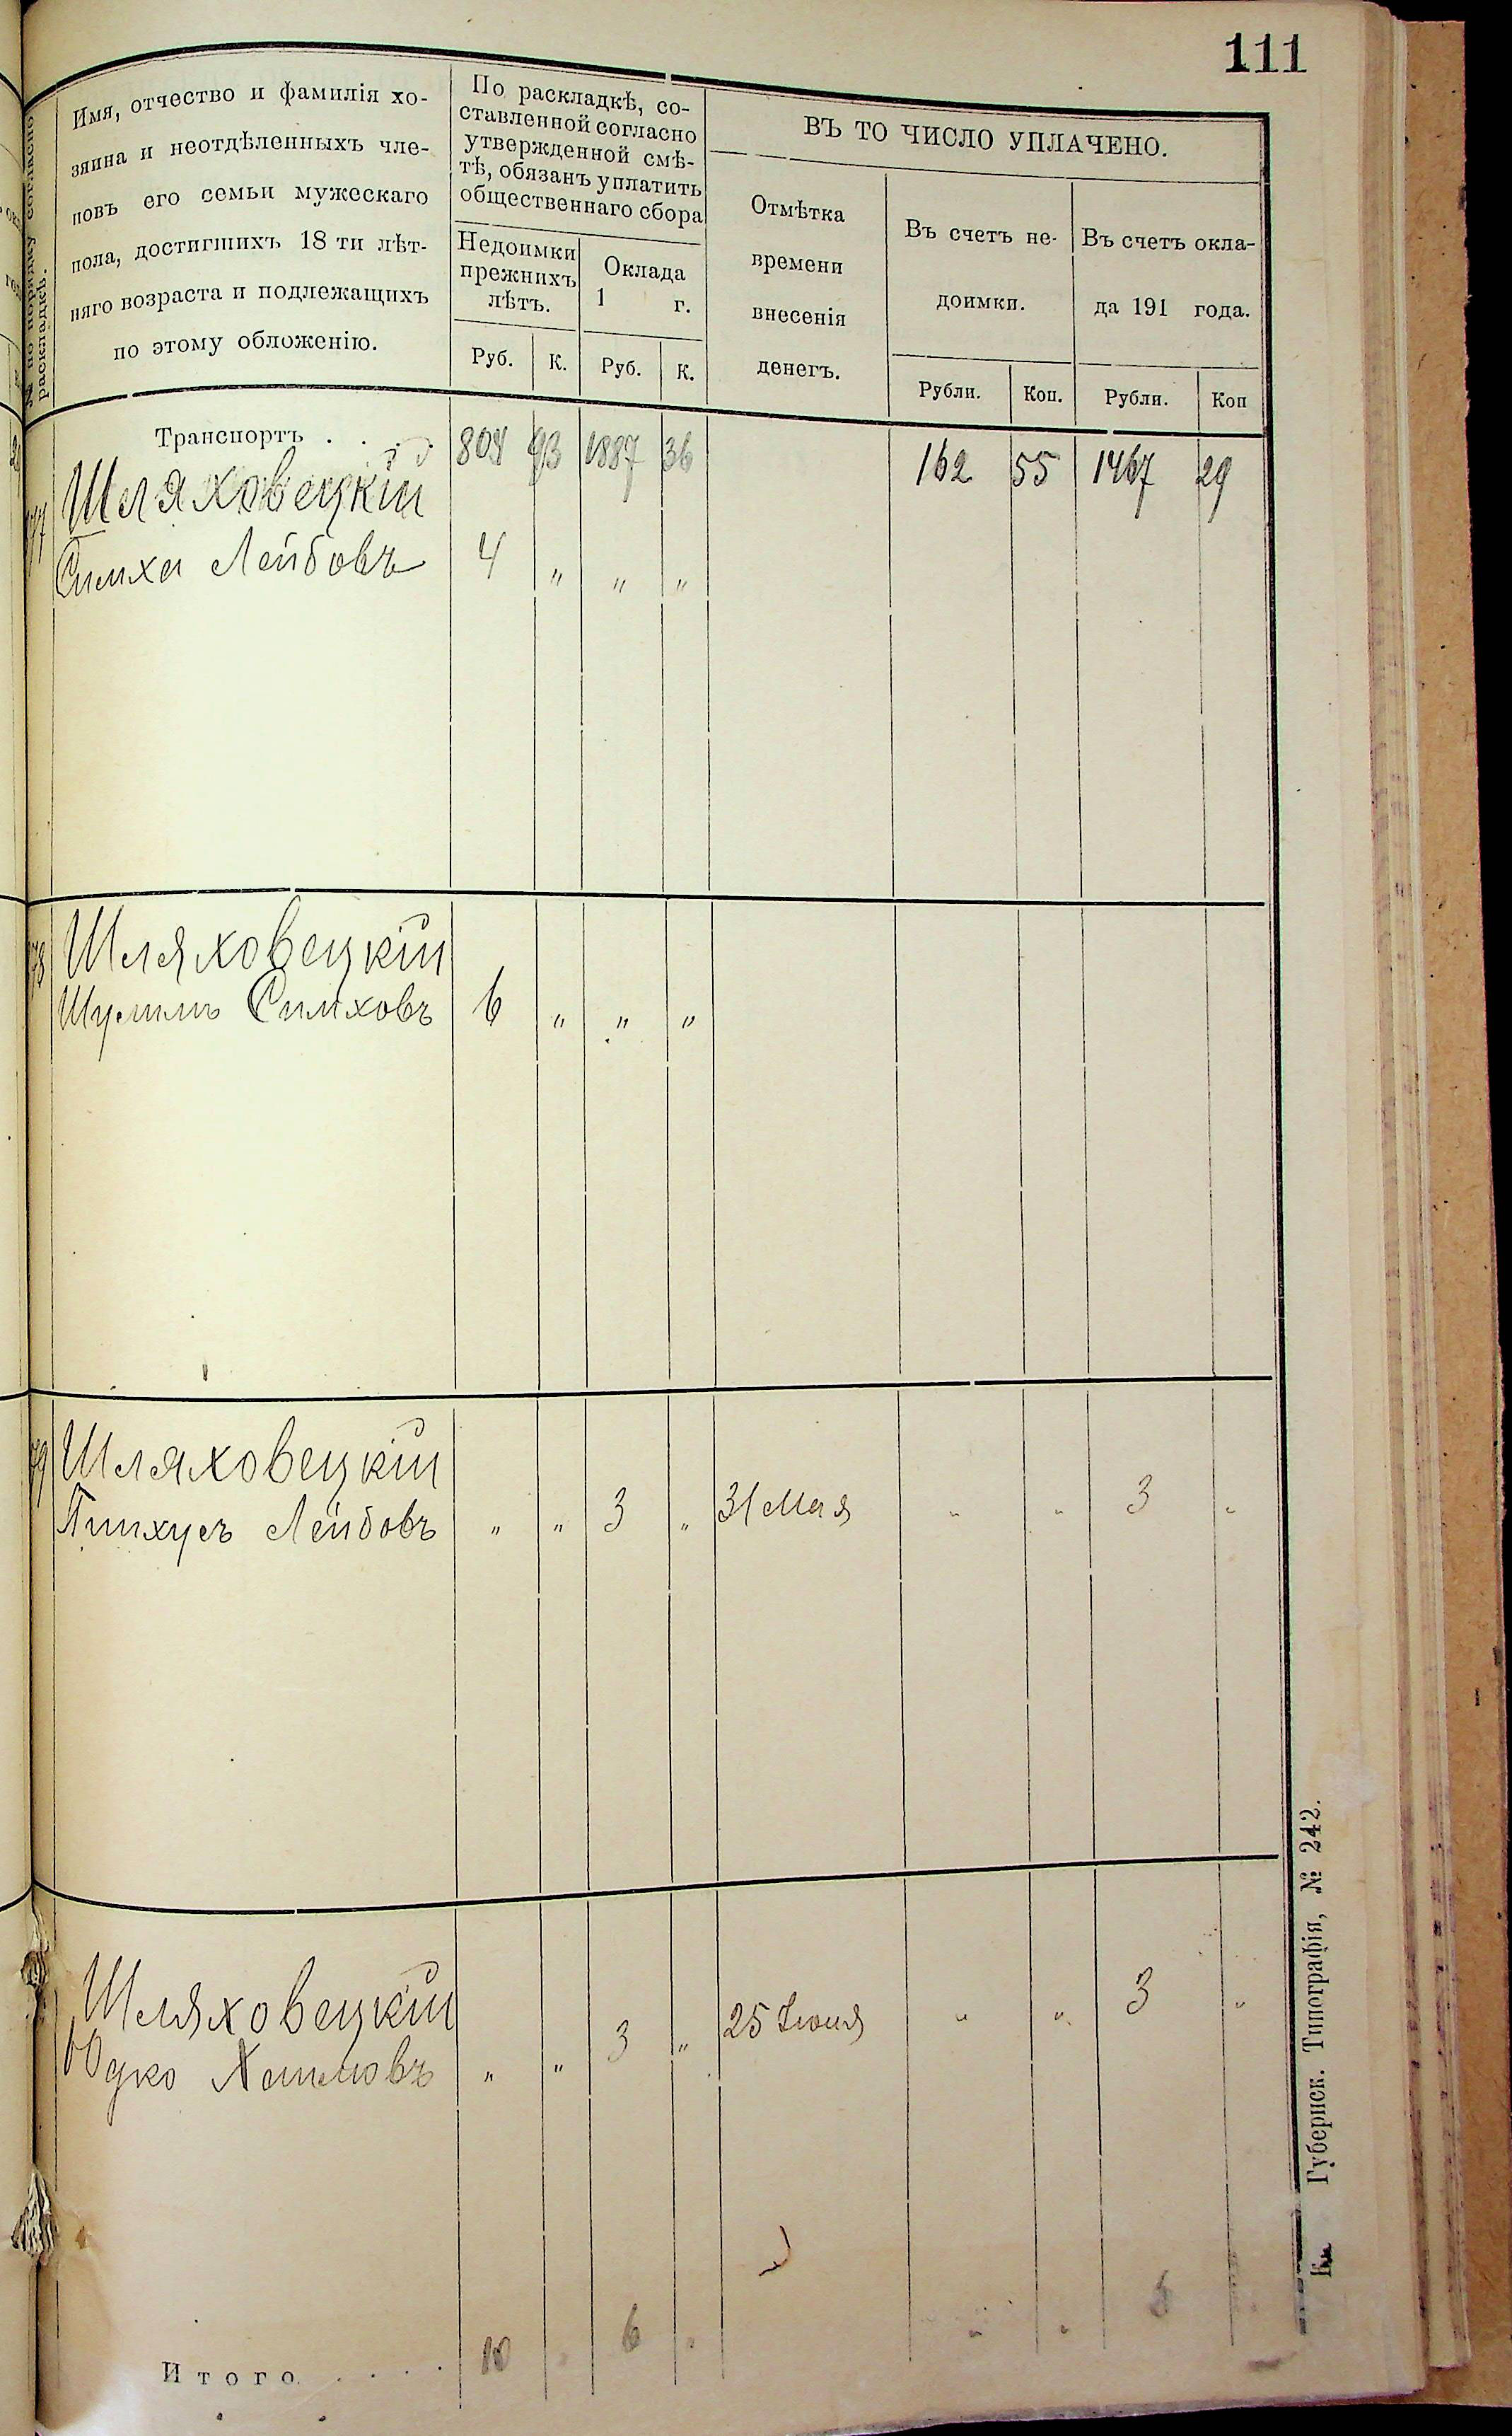 111
№ по порядку согласно раскладкѣ.
Имя, отчество и фамилія хо-
зяина и неотдѣленныхъ чле-
новъ его семьи мужескаго
пола, достигшихъ 18 ти лѣт-
няго возраста и подлежащихъ
по этому обложенію.
По раскладкѣ, со-
ставленной согласно
утвержденной смѣ-
тѣ, обязанъ уплатить
общественнаго сбора
Недоимки
прежнихъ
лѣтъ.
Оклада
1 г.
Руб. К. Руб. К.
ВЪ ТО ЧИСЛО УПЛАЧЕНО.
Отмѣтка
времени
внесенія
денегъ.
Въ счетъ не-
доимки.
Въ счетъ окла-
да 191 года.
Рубли. Коп. Рубли. Коп
Транспортъ . . . . 93 1887 36 162 55 1467 29
Шляховецкій
Симха Лейбовъ 4 " " "
78 Шляховецкій
Шулимъ Симховъ 6 " " "
79 Шляховецкій
Пинхусъ Лейбовъ " " 3 " 31 Мая " " 3 "
Шляховецкій
Юдко Хаимовъ " " 3 " 25 Іюня " " 3 "
Итого . . . . 10 " 6 " " "
Губернск. Типографія, № 242.